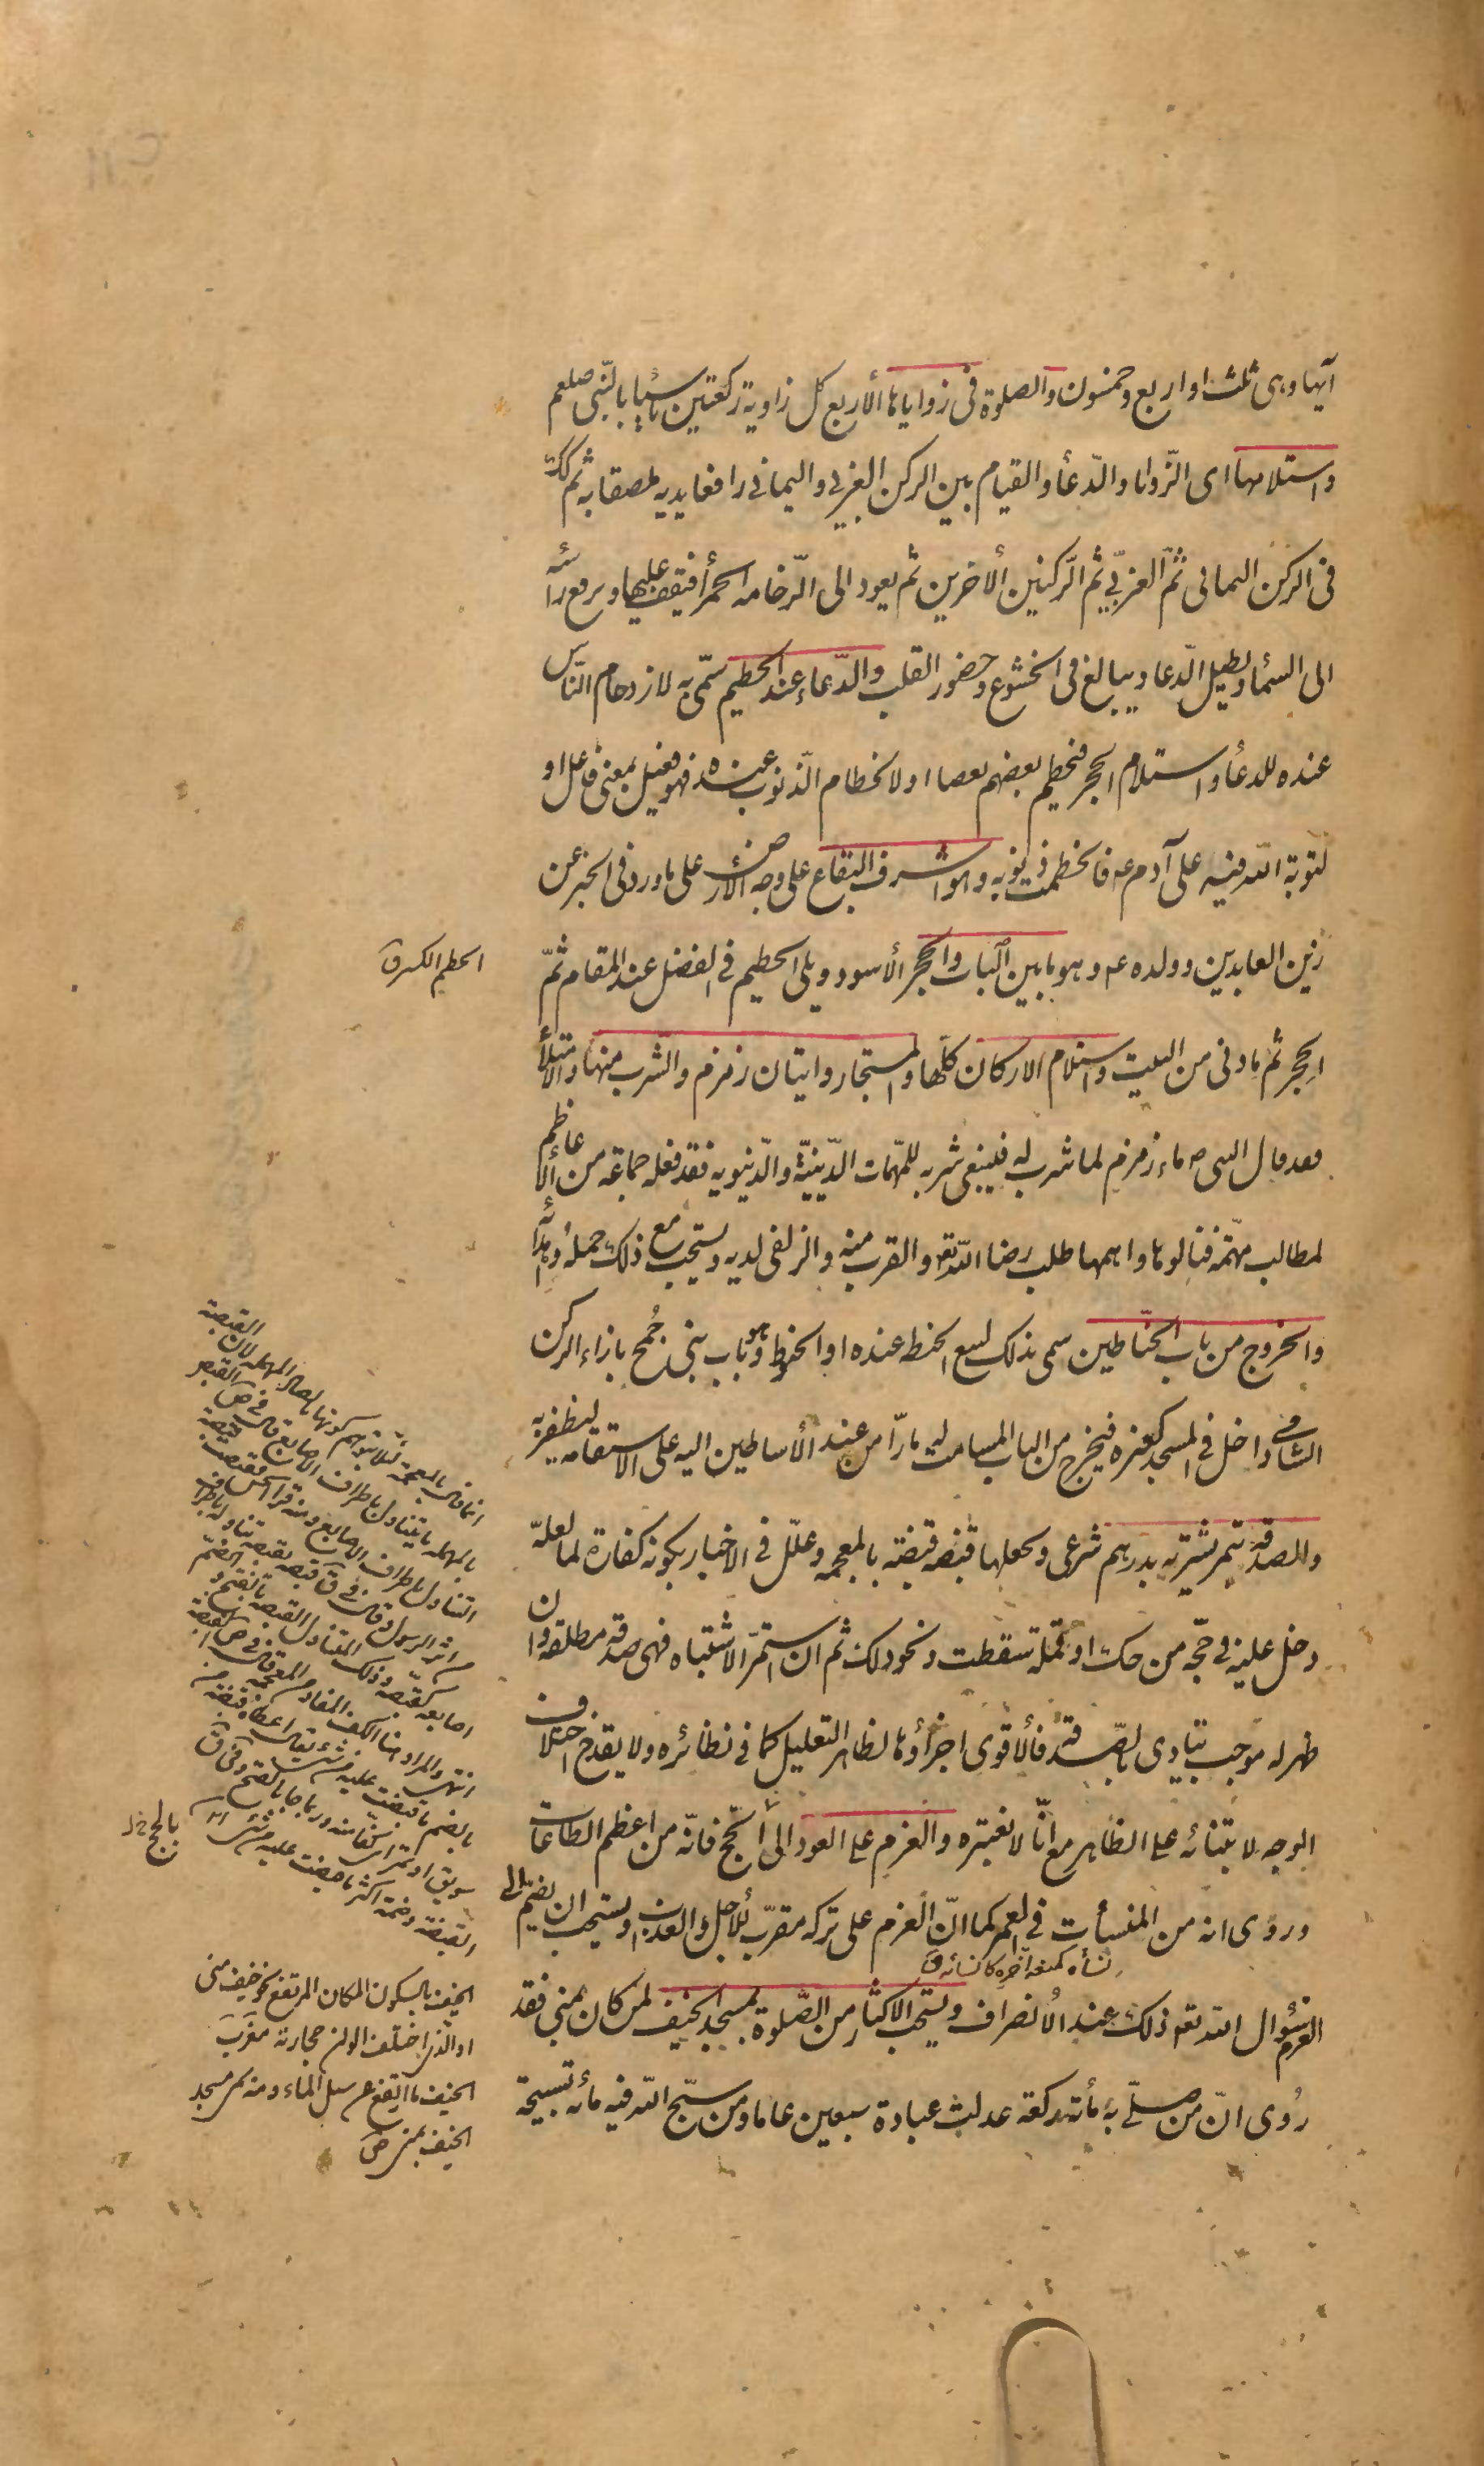 آيها وهى ثلث او اربع وخمسون والصلوة فى زواياها الأربع كل زاوية ركعتين تأسيا بالنّبى صلعم
واستلامها اى الزّوايا والدّعأ والقيام بين الركن الغربي واليماني رافعا يديه ملصقا به ثم كك
فى الركن اليمانى ثمّ الغربّي ثم الرّكنين الأخرين ثم يعود الى الرّخامه الحمرأ فيقف عليها ويرفع رأسه
الى السّمأ ويطيل الدّعا ويبالغ فى الخشوع وحضور القلب والدّعاء عند الحطيم سمّى به لازدحام النّاس
عنده للدعأ واستلام الحجر فيحطم بعضهم بعضا او لانحطام الذّنوب عنده فهو فعيل بمعنى فاعل او
لتوبة اللّه فيه على آدم ع فانحطمت ذنوبه وهو اشرف البقاع على وجه الأرض على ما ورد فى الخبر عن
زين العابدين وولده ع وهو ما بين الباب والحجر الأسود ويلى الحطيم فى الفضل عند المقام ثمّ
الحجر ثم ما دنى من البيت واستلام الاركان كلّها والمستجار واتيان زمزم والشرب منها والامتلأ
فقد قال النبى ص ماء زمزم لما شرب له فينبغى شربه للمهّمات الدّينيّة والدّنيويه فقد فعله جماعة من الأعاظم
لمطالب مهمّة فنالوها واهمها طلب رضا اللّه تع والقرب منه والزلفى لديه ويستحب مع ذلك حمله واهدائه
والخروج من باب الحنّاطين سمى بذلك لبيع الحنطه عنده او الحنوط وهو باب بنى جُمح بازاء الركن
الشامى داخل فى المسجد كغيره فيخرج من الباب المسامت له مارّا من عند الأساطين اليه على الاستقامه ليظفر به
والصدقة بتمر يشتريه بدرهم شرعى ويجعلها قبضة قبضة بالمعجمه وعلّل فى الاخبار بكونه كفارة لما لعلّه
دخل عليه فى حجّه من حك او قملة سقطت ونحو ذلك ثم ان استمرّ الاشتباه فهى صدقة مطلقه وان
ظهر له موجب يتادى بالصّدقة فالأقوى اجزأوها لظاهر التعليل كما فى نظائره ولا يقدح اختلاف
الوجه لابتنائه على الظاهر مع انّا لا نعتبره والعزم على العود الى الحّج فانّه من اعظم الطاعات
وروى انه من المنسأت فى العمر كما انّ العزم على تركه مقرّب للأجل والعذاب ويستحب ان يضمّ الى
نسأه كمنعه اخره كانسائه ق
العزم سؤال اللّه تع ذلك عند الانصراف ويستحب الاكثار من الصّلوة بمسجد الخيف لمن كان بمنى فقد
رُوى انّ من صلّى به مأته ركعة عدلت عبادة سبعين عاما ومن سبّح اللّه فيه مأته تسبيحة
الحطم الكسر ق
انما قال بالمعجمة لئلا يتوهم كونها بالصاد المهمله لان القبصة
بالمهمله ما يتناول باطراف الاصابع قال فى ص القبص
التناول باطراف الاصابع ومنه قرأ الحسن فقبصت قبصة
من اثر الرسول وقال فى ق قبصه يقبصه تناوله باطراف
اصابعه كقبّصه وذلك المتناول القبصة بالفتح والضّم
انتهى والمراد هنا الكف المفاد من المعجمه قال فى ص القبضة
بالضم ما قبضت عليه من شئ يقال اعطاه قبضة من
سويق او تمر اى كفّا منه وربما جا بالفتح وفى ق
القبضة وضمه اكثر ما قبضت عليه من شئ
الخيف بالسكون المكان المرتفع نحو خيف منى
او الّذى اختلف الوان حجارته مغرب
الخيف ما ارتفع عن سيل الماء ومنه سمى مسجد
الخيف بمنى ص